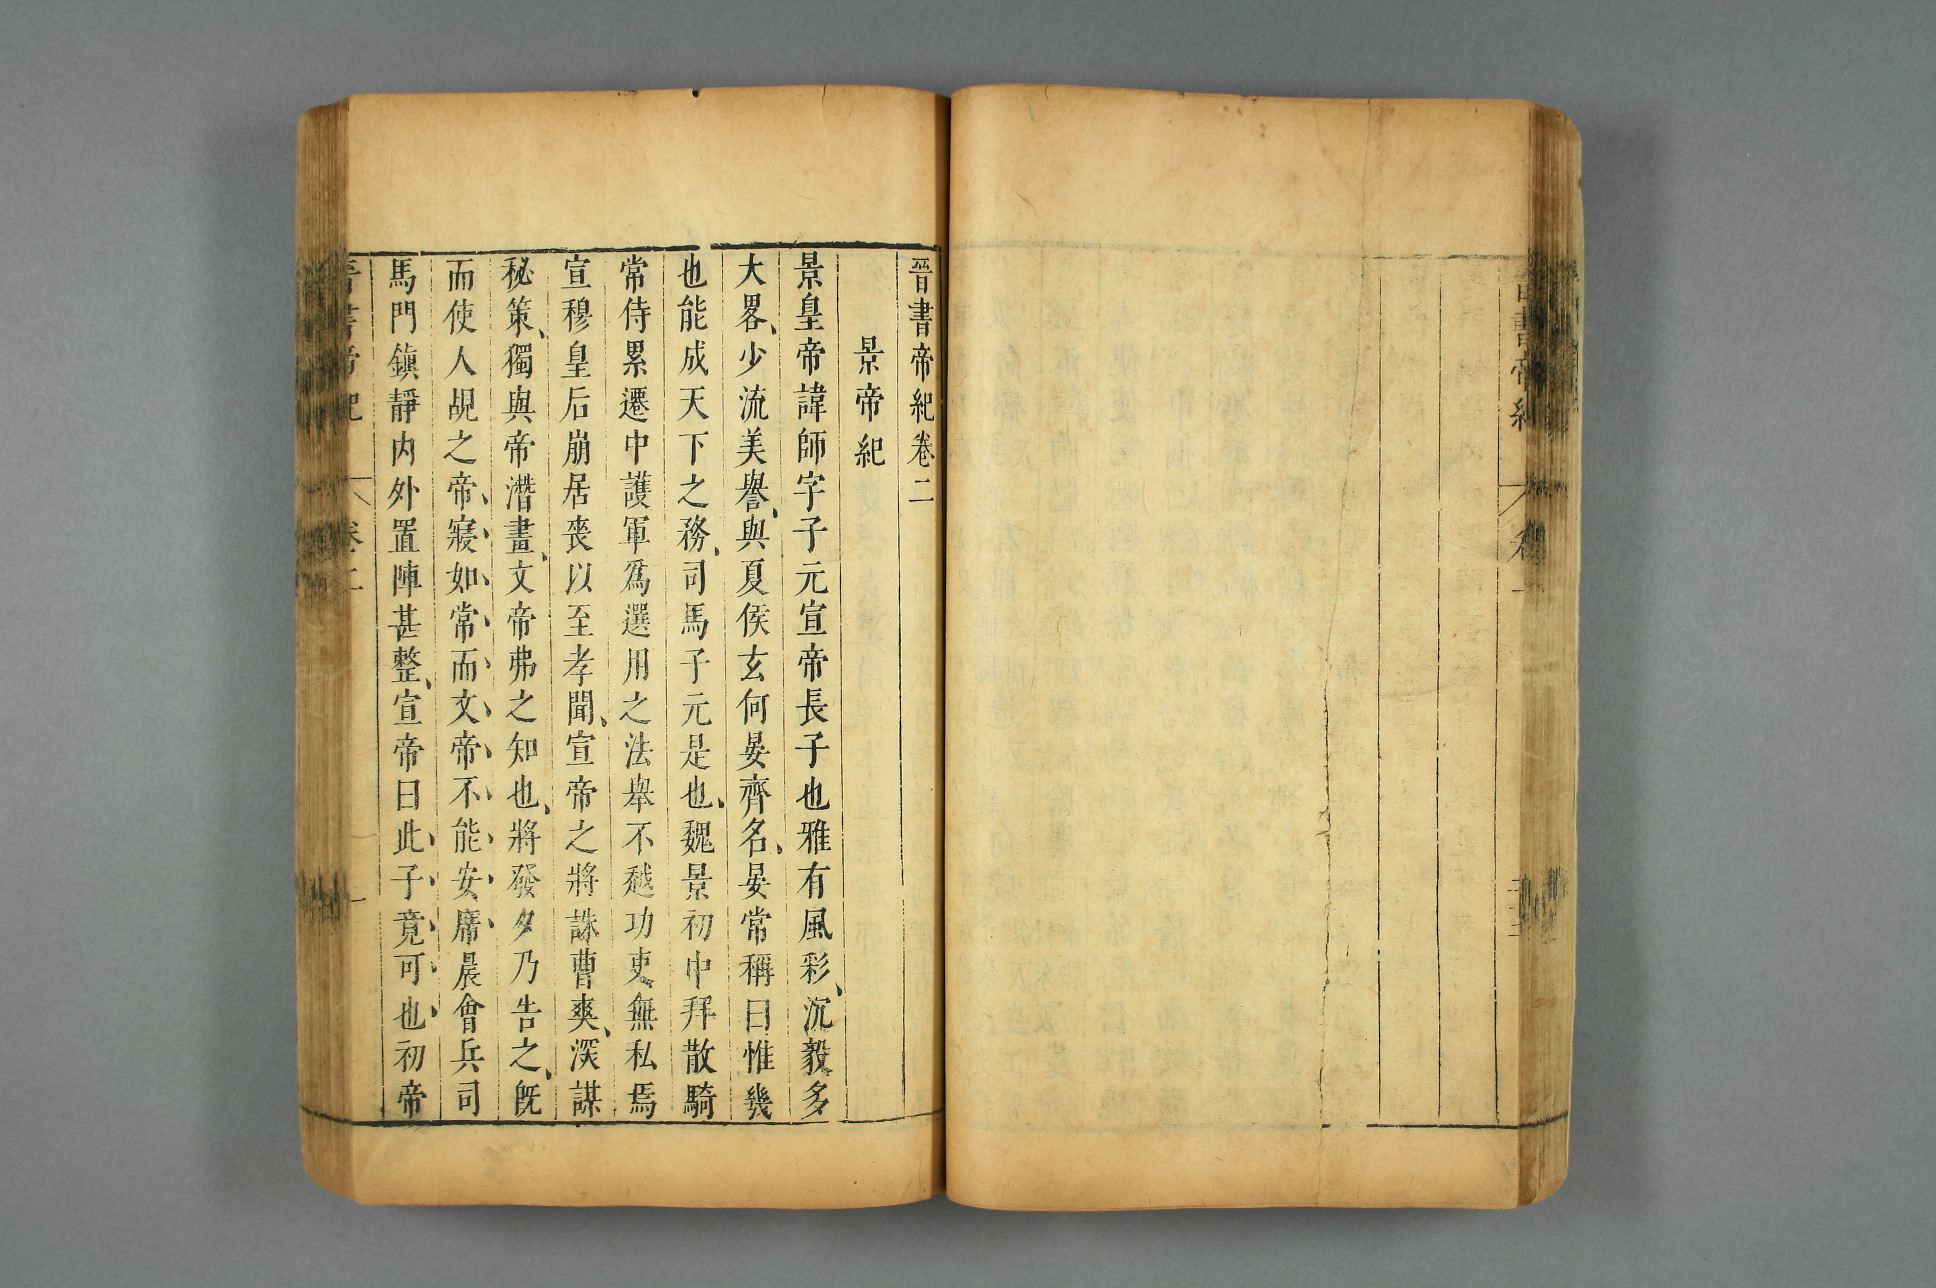 晉書帝紀
卷一
晉書帝紀卷二
景帝紀
景皇帝諱師字子元宣帝長子也雅有風彩、沉毅多
大畧、少流美譽、與夏侯玄何晏齊名、晏常稱曰惟幾
也能成天下之務、司馬子元是也、魏景初中拜散騎
常侍累遷中護軍爲選用之法舉不越功吏無私焉
宣穆皇后崩居喪以至孝聞、宣帝之將誅曹爽、深謀
秘策、獨與帝潛畫、文帝弗之知也、將發夕乃告之、既
而使人覘之帝、寢、如、常、而、文、帝、不、能、安、席、晨會兵司
馬門鎮靜内外置陣甚整、宣帝曰此、子、竟、可、也、初帝
晉書帝紀
卷二
一